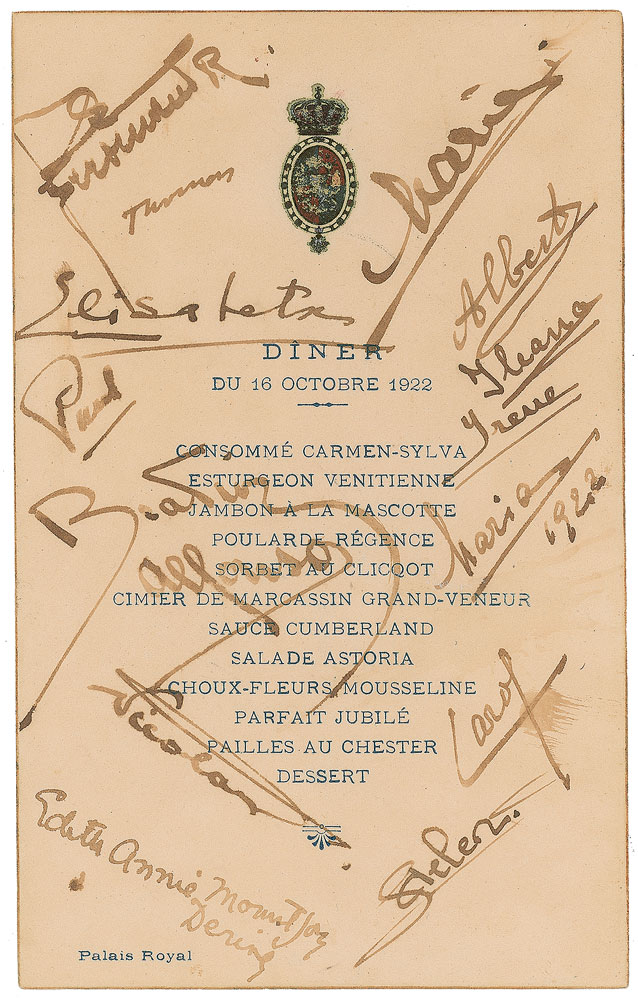 Ferdinand R
Marie
Albert
Elisabeta
Ileana
DÎNER
DU 16 OCTOBRE 1922
Paul
Irene
CONSOMMÉ CARMEN-SYLVA
ESTURGEON VENITIENNE
Beatrix
JAMBON À LA MASCOTTE
Maria
1922
POULARDE RÉGENCE
SORBET AU CLICQOT
Alfonso
CIMIER DE MARCASSIN GRAND-VENEUR
SAUCE CUMBERLAND
SALADE ASTORIA
CHOUX-FLEURS MOUSSELINE
Carol
PARFAIT JUBILÉ
Nicolas
PAILLES AU CHESTER
DESSERT
Helen
Edith Annie Mountjoy
Dering
Palais Royal